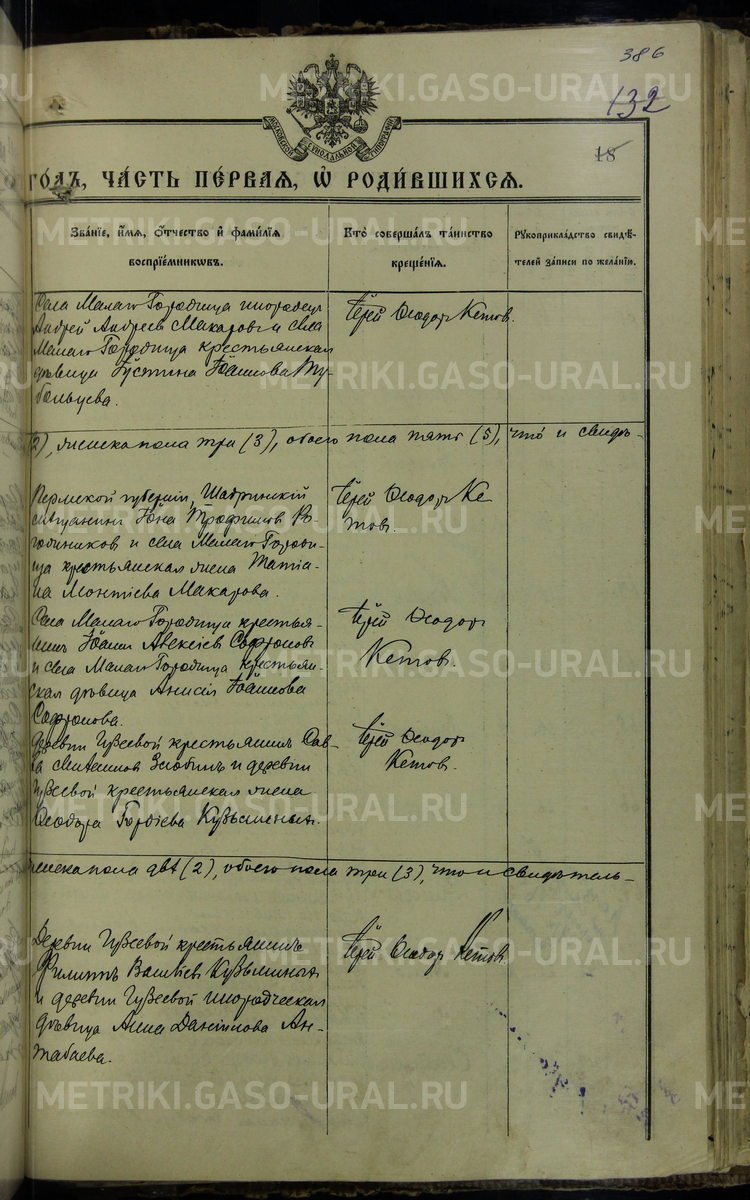 386
132
18
МОСКОВСКОЙ СѴНОДАЛЬНОЙ ТИПОГРАФІИ
ГОДЪ, ЧА́СТЬ ПЕ́РВАЯ, Ѡ҆ РОДИ́ВШИХСЯ.
Зва́ніе, и҆́мя, ѻ҆́тчество и҆ фами́лія
воспріе́мниковъ.
Кто̀ соверша́лъ та́инство
креще́нія.
Рукоприкла́дство свидѣ́-
телей за́писи по жела́нію.
Села Малаго Городища инородецъ
Андрей Андреевъ Макаровъ и села
Малаго Городища крестьянская
дѣвица Іустина Іоаннова Ту-
больцева.
Іерей Ѳеодоръ Кетовъ.
(2), женска пола три (3), обоего пола пять (5), что и свидѣ-
Пермской губерніи, Шадринскій
мѣщанинъ Іона Трофимовъ
и села Малаго Городи-
ща крестьянская жена Татіа-
на Макарова.
Іерей Ѳеодоръ Ке-
товъ.
Села Малаго Городища крестья-
нинъ Іоаннъ Алексіевъ Софроновъ
и села Малаго Городища крестьян-
ская дѣвица Анисія Іоаннова
Софронова.
Іерей Ѳеодоръ
Кетовъ.
Деревни Гузеевой крестьянинъ Сав-
ва Злобинъ и деревни
Гузеевой крестьянская жена
Ѳеодора Гордіева Кузьминыхъ.
Іерей Ѳеодоръ
Кетовъ.
женска пола двѣ (2), обоего пола три (3), что и свидѣтель-
Деревни Гузеевой крестьянинъ
Филиппъ Кузьминыхъ
и деревни Гузеевой инородческая
дѣвица Анна Даніилова Ан-
табаева.
Іерей Ѳеодоръ Кетовъ
METRIKI.GASO-URAL.RU